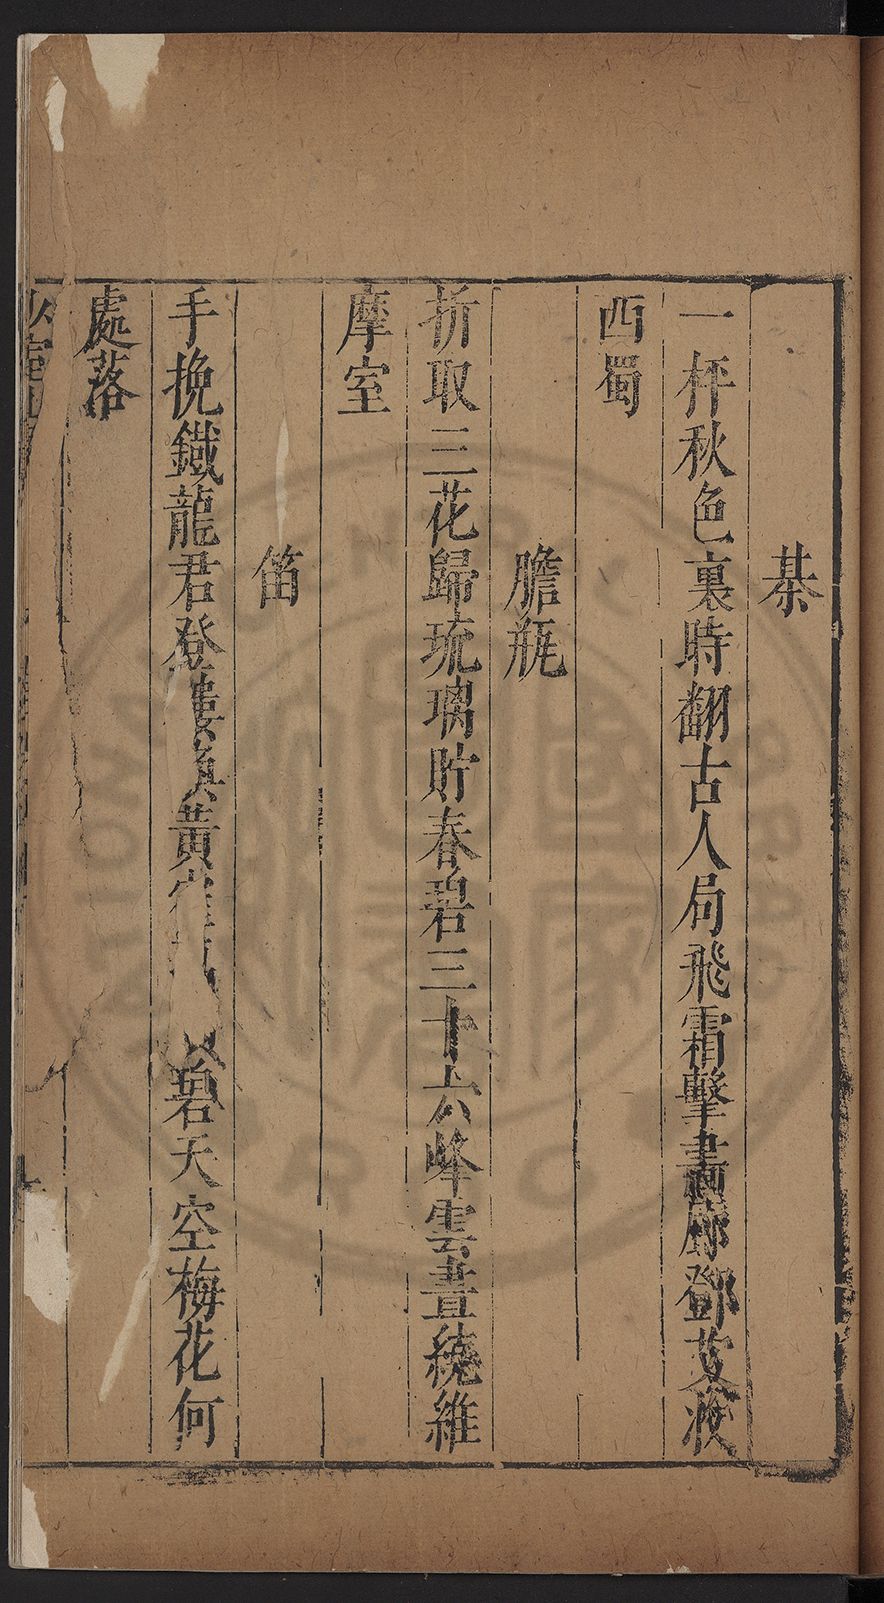 棊
一枰秋色裏時翻古人局飛霜擊畫廊鄧艾
西蜀
膽瓶
折取三花歸琉璃貯春碧三十六峰雲晝繞維
摩室
笛
手挽鐵龍君登樓黃碧天空梅花何
處落